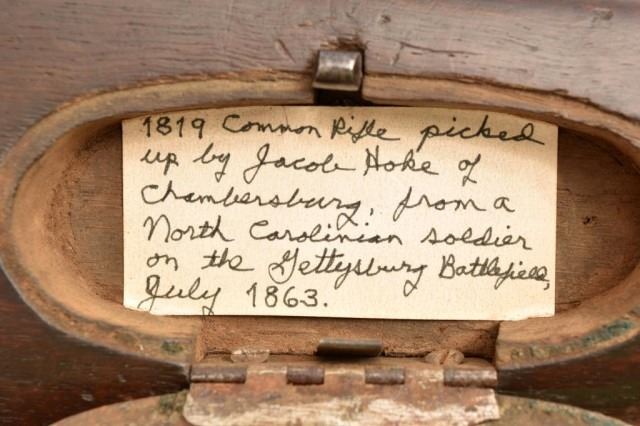 1819 Common Rifle picked
up by Jacob Hoke of
Chambersburg, from a
North Carolinian soldier
on the Gettysburg Battlefield,
July 1863.